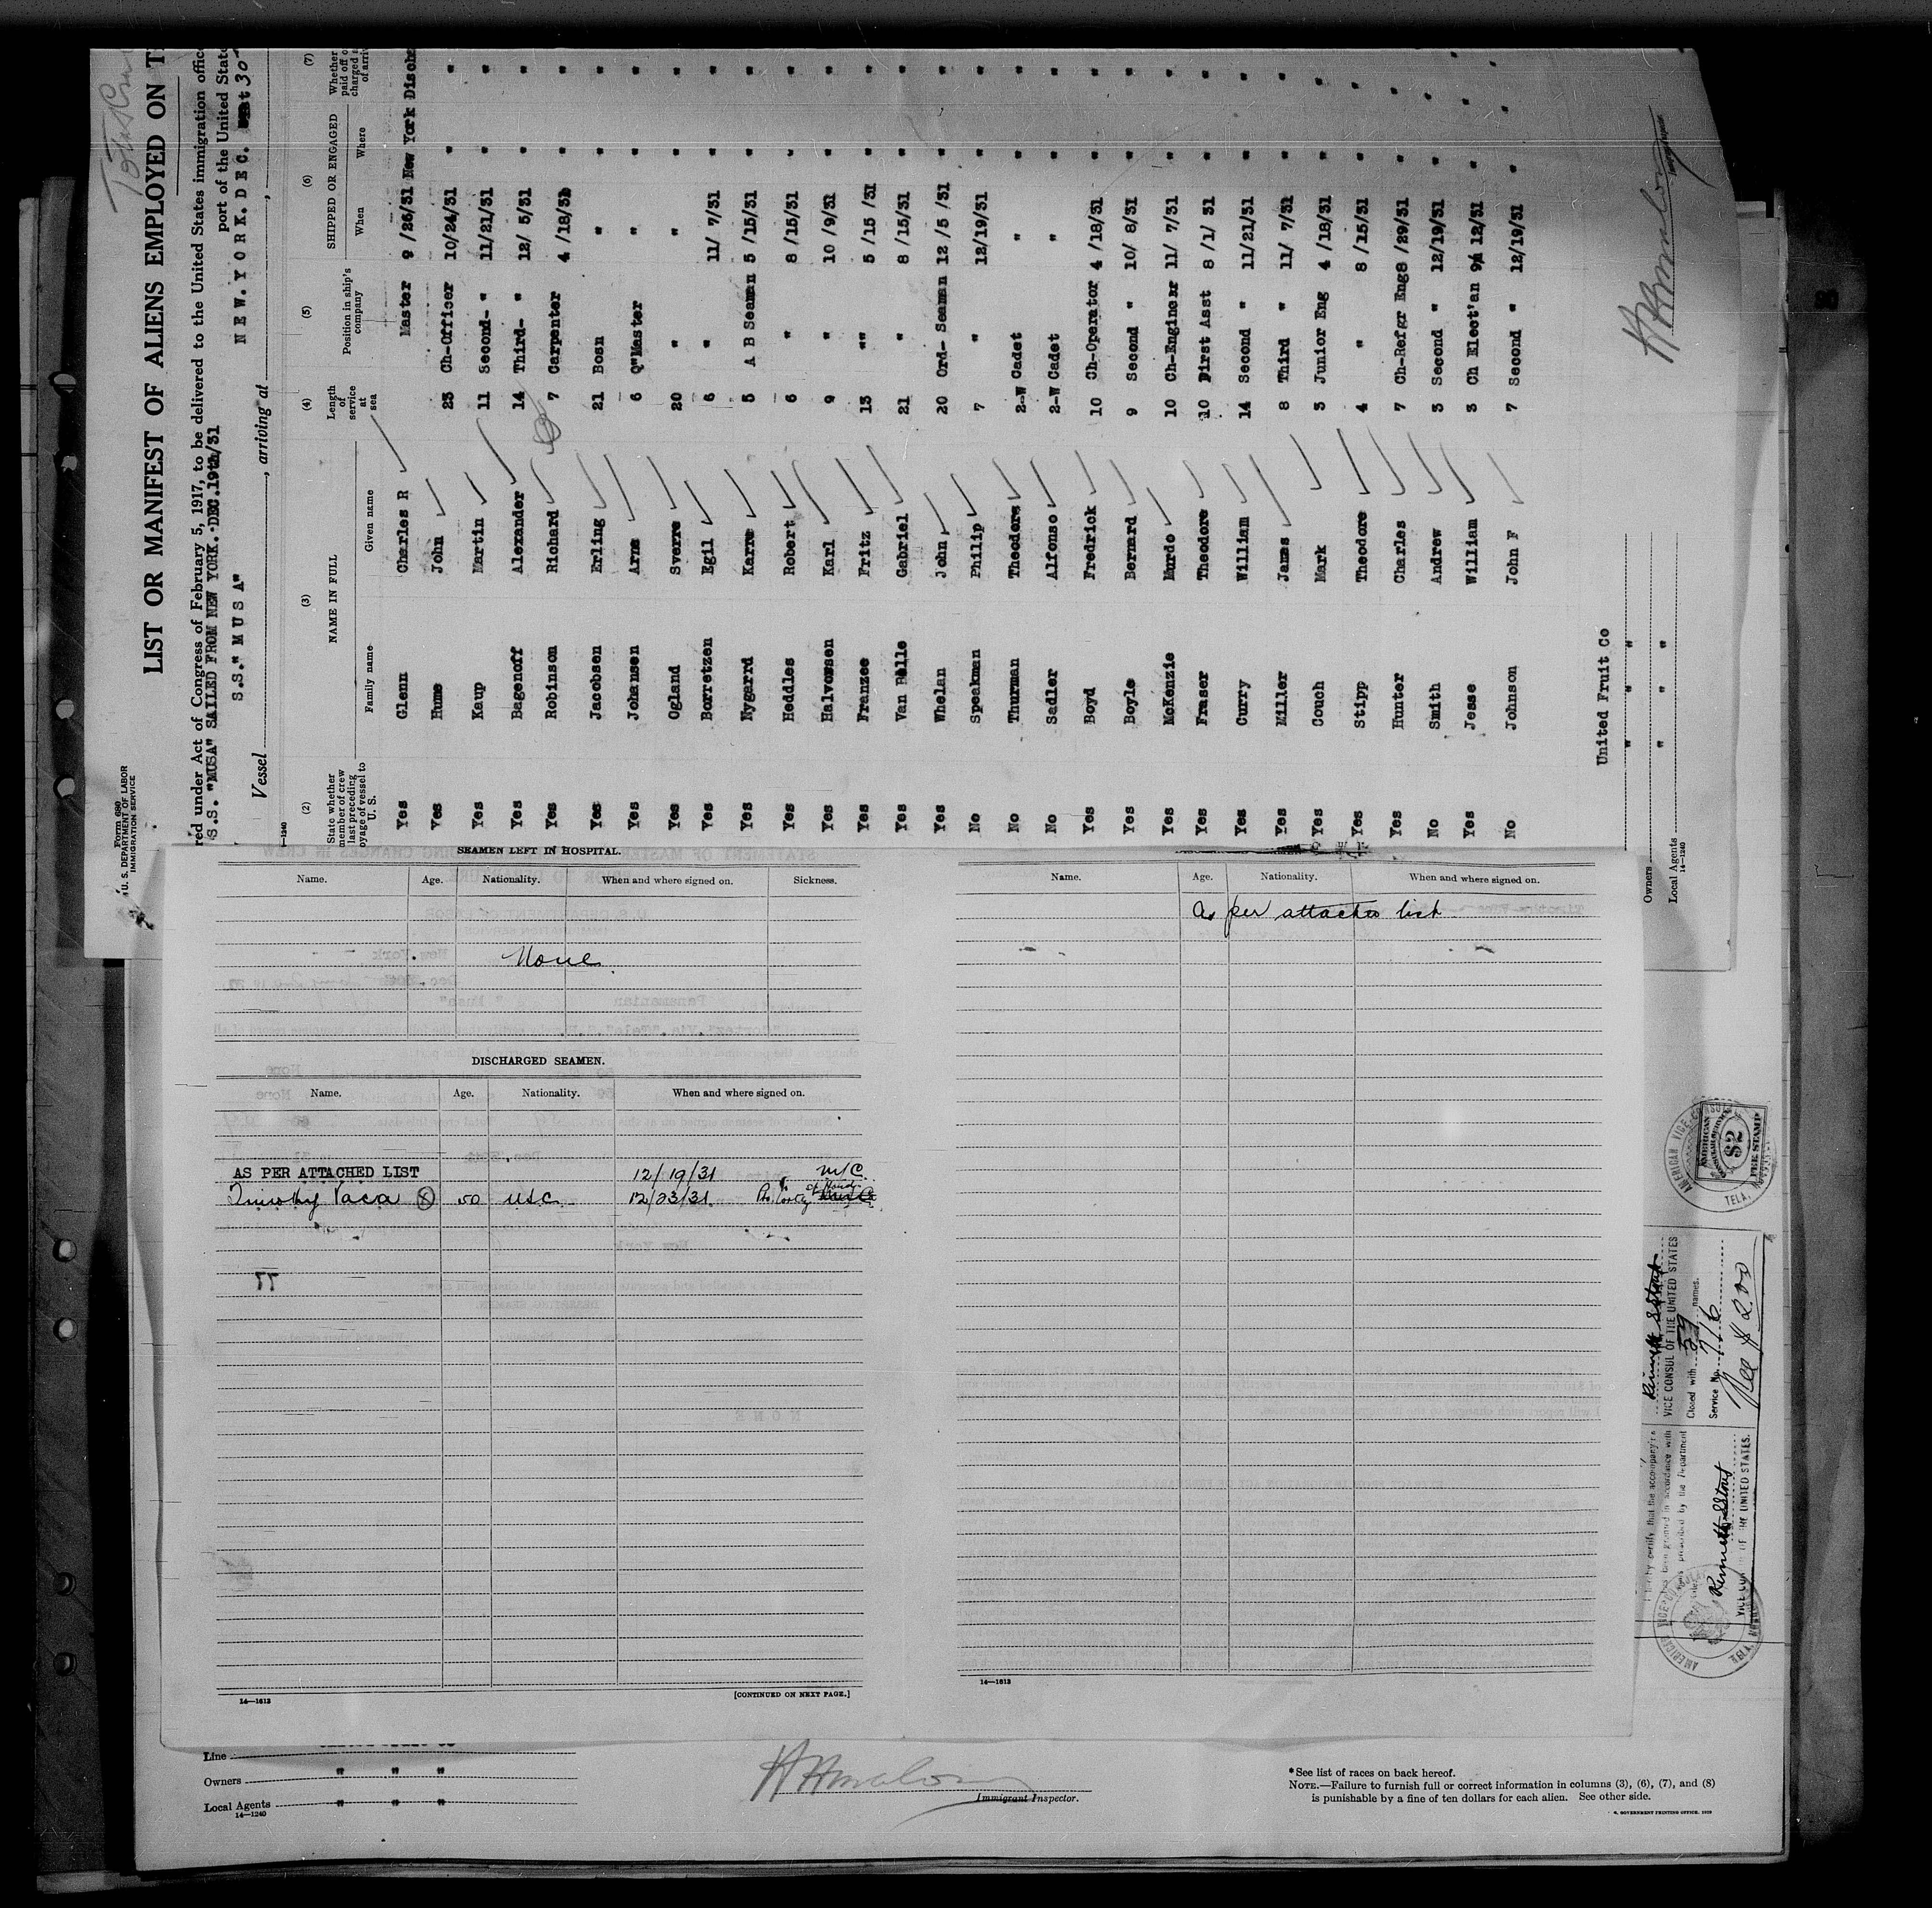 Form 680
U. S. DEPARTMENT OF LABOR
IMMIGRATION SERVICE
LIST OR MANIFEST OF ALIENS EMPLOYED ON T
red under Act of Congress of February 5, 1917, to be delivered to the United States immigration offic
port of the United State
S.S. "MUSA" SAILED FROM NEW YORK. DEC.19th/31
S.S." M U S A" N E W. Y O R K. D E C. 30
Vessel , arriving at ,
14—1240
(2) (3) (4) (5) (6) (7)
State whether member of crew last preceding voyage of vessel to U. S. NAME IN FULL Length of service at sea Position in ship's company SHIPPED OR ENGAGED Whether
Family name Given name When Where
Yes Glenn Charles R Master 9 /26/31 New York Disch
Yes Hume John 23 Ch-Officer 10/24/31 " "
Yes Kaup Martin 11 Second- " 11/21/31 " "
Yes Bagenoff Alexander 14 Third- " 12/ 5/31 " "
Yes Robinson Richard 7 Carpenter 4 /18/31 " "
Yes Jacobsen Erling 21 Bosn " " "
Yes Johansen Arne 6 Q"Master " " "
Yes Ogland Sverre 20 " " " "
Yes Borretzen Egil 6 " 11/ 7/31 " "
Yes Nygard Karre 5 A B Seaman 5 /15/31 " "
Yes Heddles Robert 6 " 8 /15/31 " "
Yes Halvorsen Karl 9 " 10 /9/31 " "
Yes Franzee Fritz 13 "" 5 /15 /31 " "
Yes Van Belle Gabriel 21 " 8 /15/31 " "
Yes Whelan John 20 Ord- Seaman 12 /5 /31 " "
No Speakman Philip 7 " 12/19/31 " "
No Thurman Theodore 2-W Cadet " " "
No Sadler Alfonso 2-W Cadet " " "
Yes Boyd Fredrick 10 Ch-Operator 4 /18/31 " "
Yes Boyle Bernard 9 Second " 10/ 8/31 " "
Yes McKenzie Murdo 10 Ch-Engineer 11/ 7/31 " "
Yes Fraser Theodore 10 First Asst 8 /1/ 31 " "
Yes Curry William 14 Second " 11/21/31 " "
Yes Miller James 8 Third " 11/ 7/31 " "
Yes Couch Mark 3 Junior Eng 4 /18/31 " "
Yes Stipp Theodore 4 " 8 /15/31 " "
Yes Hunter Charles 7 Ch-Refgr Eng 8 /29/31 " "
No Smith Andrew 3 Second " 12/19/31 " "
Yes Jesse William 3 Ch Elect'an 9/ 12/31 " "
No Johnson John F 7 Second " 12/19/31 " "
United Fruit Co
Owners " " "
Local Agents " " "
14—1240
SEAMEN LEFT IN HOSPITAL.
Name. Age. Nationality. When and where signed on. Sickness.
None
DISCHARGED SEAMEN.
Name. Age. Nationality. When and where signed on.
AS PER ATTACHED LIST 12/19/31 N/C
Timothy Vaca 50 USC 12/23/31
77
14—1613
[CONTINUED ON NEXT PAGE.]
Name. Age. Nationality. When and where signed on.
As per attached list
14—1613
AMERICAN VICE CONSUL
AMERICAN
$2
FEE STAMP
TELA,
VICE CONSUL OF THE UNITED STATES
Closed with 59 names.
Service No. 716
Fee $2.00
certify that the accompany'g
been granted in accordance with
prescribed by the Department
VICE CONSUL OF THE UNITED STATES.
Line
Owners " " "
Local Agents " " "
14—1240
Immigrant Inspector.
*See list of races on back hereof.
NOTE.—Failure to furnish full or correct information in columns (3), (6), (7), and (8)
is punishable by a fine of ten dollars for each alien. See other side.
GOVERNMENT PRINTING OFFICE